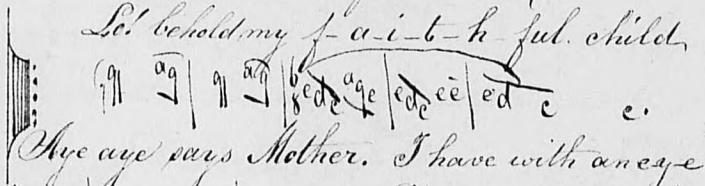 Lo! behold my f-a-i-t-h-ful. child
gg ag | gg ag | edc age | edc ee | ed c c.
Aye aye says Mother. I have with an eye